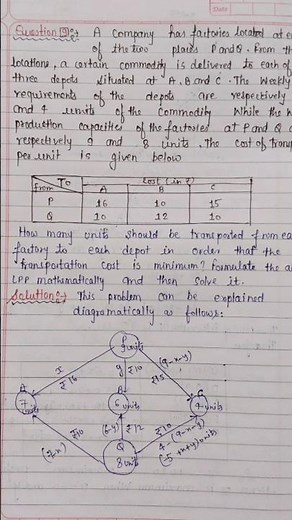 Question 9:- A company has factories located at e
of the two places P and Q. From th
locations, a certain commodity is delivered to each of
three depots situated at A, B and C. The weekly
requirements of the depots are respectively
and 4 units of the commodity While the w
production capacities of the factories at P and Q a
respectively 9 and 8 units. The cost of trans
per unit is given below
To Cost (in ₹)
From A B C
P 16 10 15
Q 10 12 10
How many units should be transported from ea
factory to each depot in order that the
transportation cost is minimum? Formulate the a
LPP mathematically and then solve it.
Solution:- This problem can be explained
diagramatically as follows:
P
9 units
x
₹16
y ₹10
(9-x-y)
₹15
A
7 units
B
6 units
C
4 units
(7-x)
₹10
(6-y) ₹12
₹10
4-(9-x-y)
(-5+x+y) units
Q
8 units